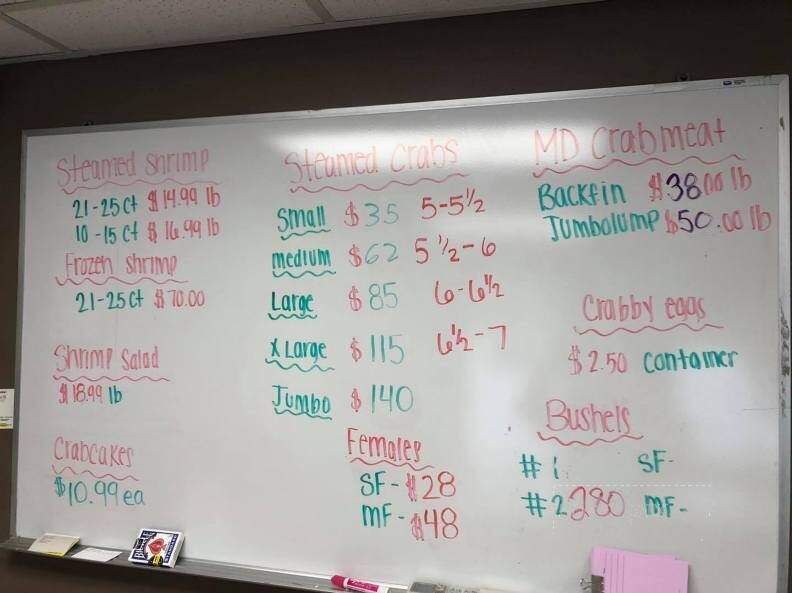 Steamed Shrimp
21-25 ct $14.99 lb
10-15 ct $16.99 lb
Frozen Shrimp
21-25 ct $70.00
Shrimp Salad
$18.99 lb
Crabcakes
$10.99 ea
Steamed Crabs
Small $35 5-5½
medium $62 5½-6
Large $85 6-6½
X Large $115 6½-7
Jumbo $140
Females
SF- $28
MF- $48
MD Crabmeat
Backfin $38.00 lb
Jumbolump $50.00 lb
Crabby eggs
$2.50 container
Bushels
#1 SF-
#2 280 MF-